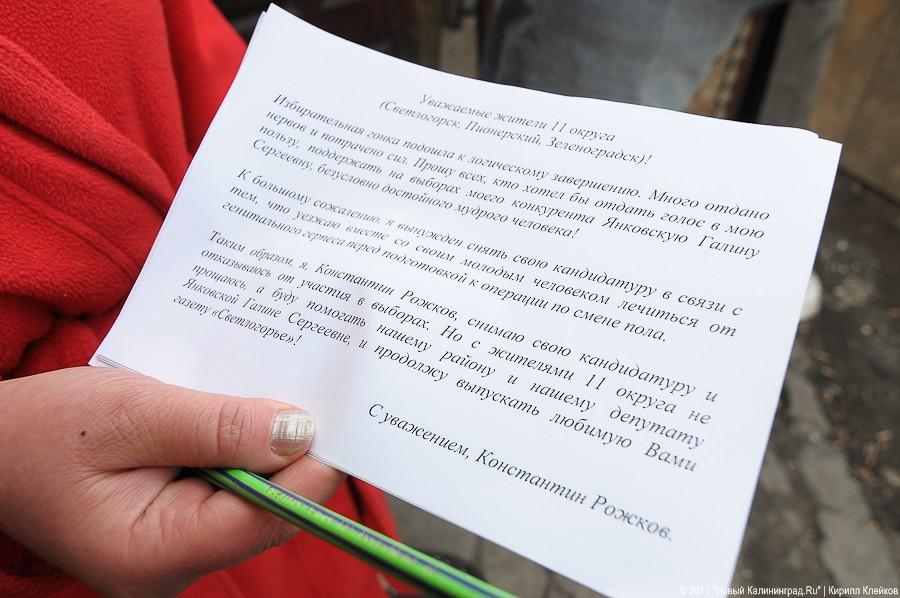 Уважаемые жители 11 округа
(Светлогорск, Пионерский, Зеленоградск)!
Избирательная гонка подошла к логическому завершению. Много отдано
нервов и потрачено сил. Прошу всех, кто хотел бы отдать голос в мою
пользу, поддержать на выборах моего конкурента Янковскую Галину
Сергеевну, безусловно достойного мудрого человека!
К большому сожалению, я вынужден снять свою кандидатуру в связи с
тем, что уезжаю вместе со своим молодым человеком лечиться от
генитального герпеса перед подготовкой к операции по смене пола.
Таким образом, я, Константин Рожков, снимаю свою кандидатуру и
отказываюсь от участия в выборах. Но с жителями 11 округа не
прощаюсь, а буду помогать нашему району и нашему депутату
Янковской Галине Сергеевне, и продолжу выпускать любимую Вами
газету «Светлогорье»!
С уважением, Константин Рожков.
© 2011 "Новый Калининград.Ru" | Кирилл Клейков